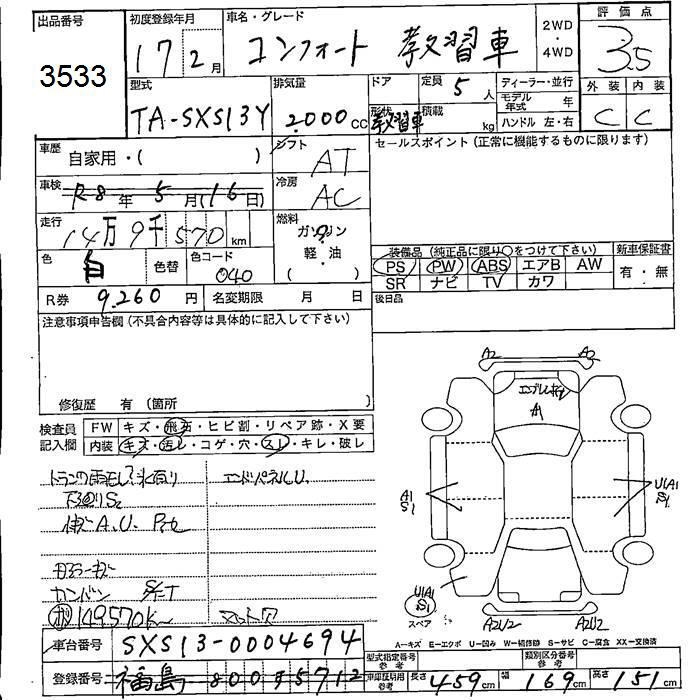 出品番号
3533
初度登録年月
17 2月
車名・グレード
コンフォート 教習車
2WD
・
4WD
評価点
3.5
型式
TA-SXS13Y
排気量
2000cc
ドア
定員
5人
形状
教習車
積載
kg
ディーラー・並行
モデル年式 年
ハンドル 左・右
外装 内装
C C
車歴
自家用・( )
シフト
AT
セールスポイント (正常に機能するものに限ります)
車検
R8年 5月(16日)
冷房
AC
走行
14万9千570km
燃料
ガソリン
軽・油
( )
色
白
色替
色コード
040
装備品 (純正品に限り○をつけて下さい)
新車保証書
PS PW ABS エアB AW
SR ナビ TV カワ
有・無
R券
9,260円
名変期限 月 日
後日品
注意事項申告欄 (不具合内容等は具体的に記入して下さい)
修復歴 有 (箇所 )
検査員
記入欄
FW キズ・飛石・ヒビ割・リペア跡・X要
内装 キズ・汚レ・コゲ・穴・スレ・キレ・破レ
下廻りS2
エンドパネルU
149570K~
A2 A2
A1
A1
S1
U1A1
S1
U1A1
S1
スペア
A2U2 A2U2
A-キズ E-エクボ U-凹み W-補修跡 S-サビ C-腐食 XX-交換済
車台番号
SXS13-0004694
型式指定番号
参考
類別区分番号
参考
登録番号
福島 800
車庫証明用
参考
長さ 459cm
幅 169cm
高さ 151cm